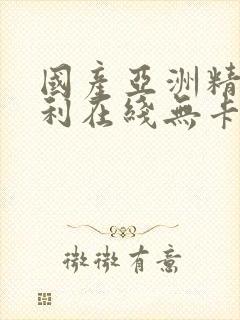 國產亞洲精
利在綫無卡
微微有意